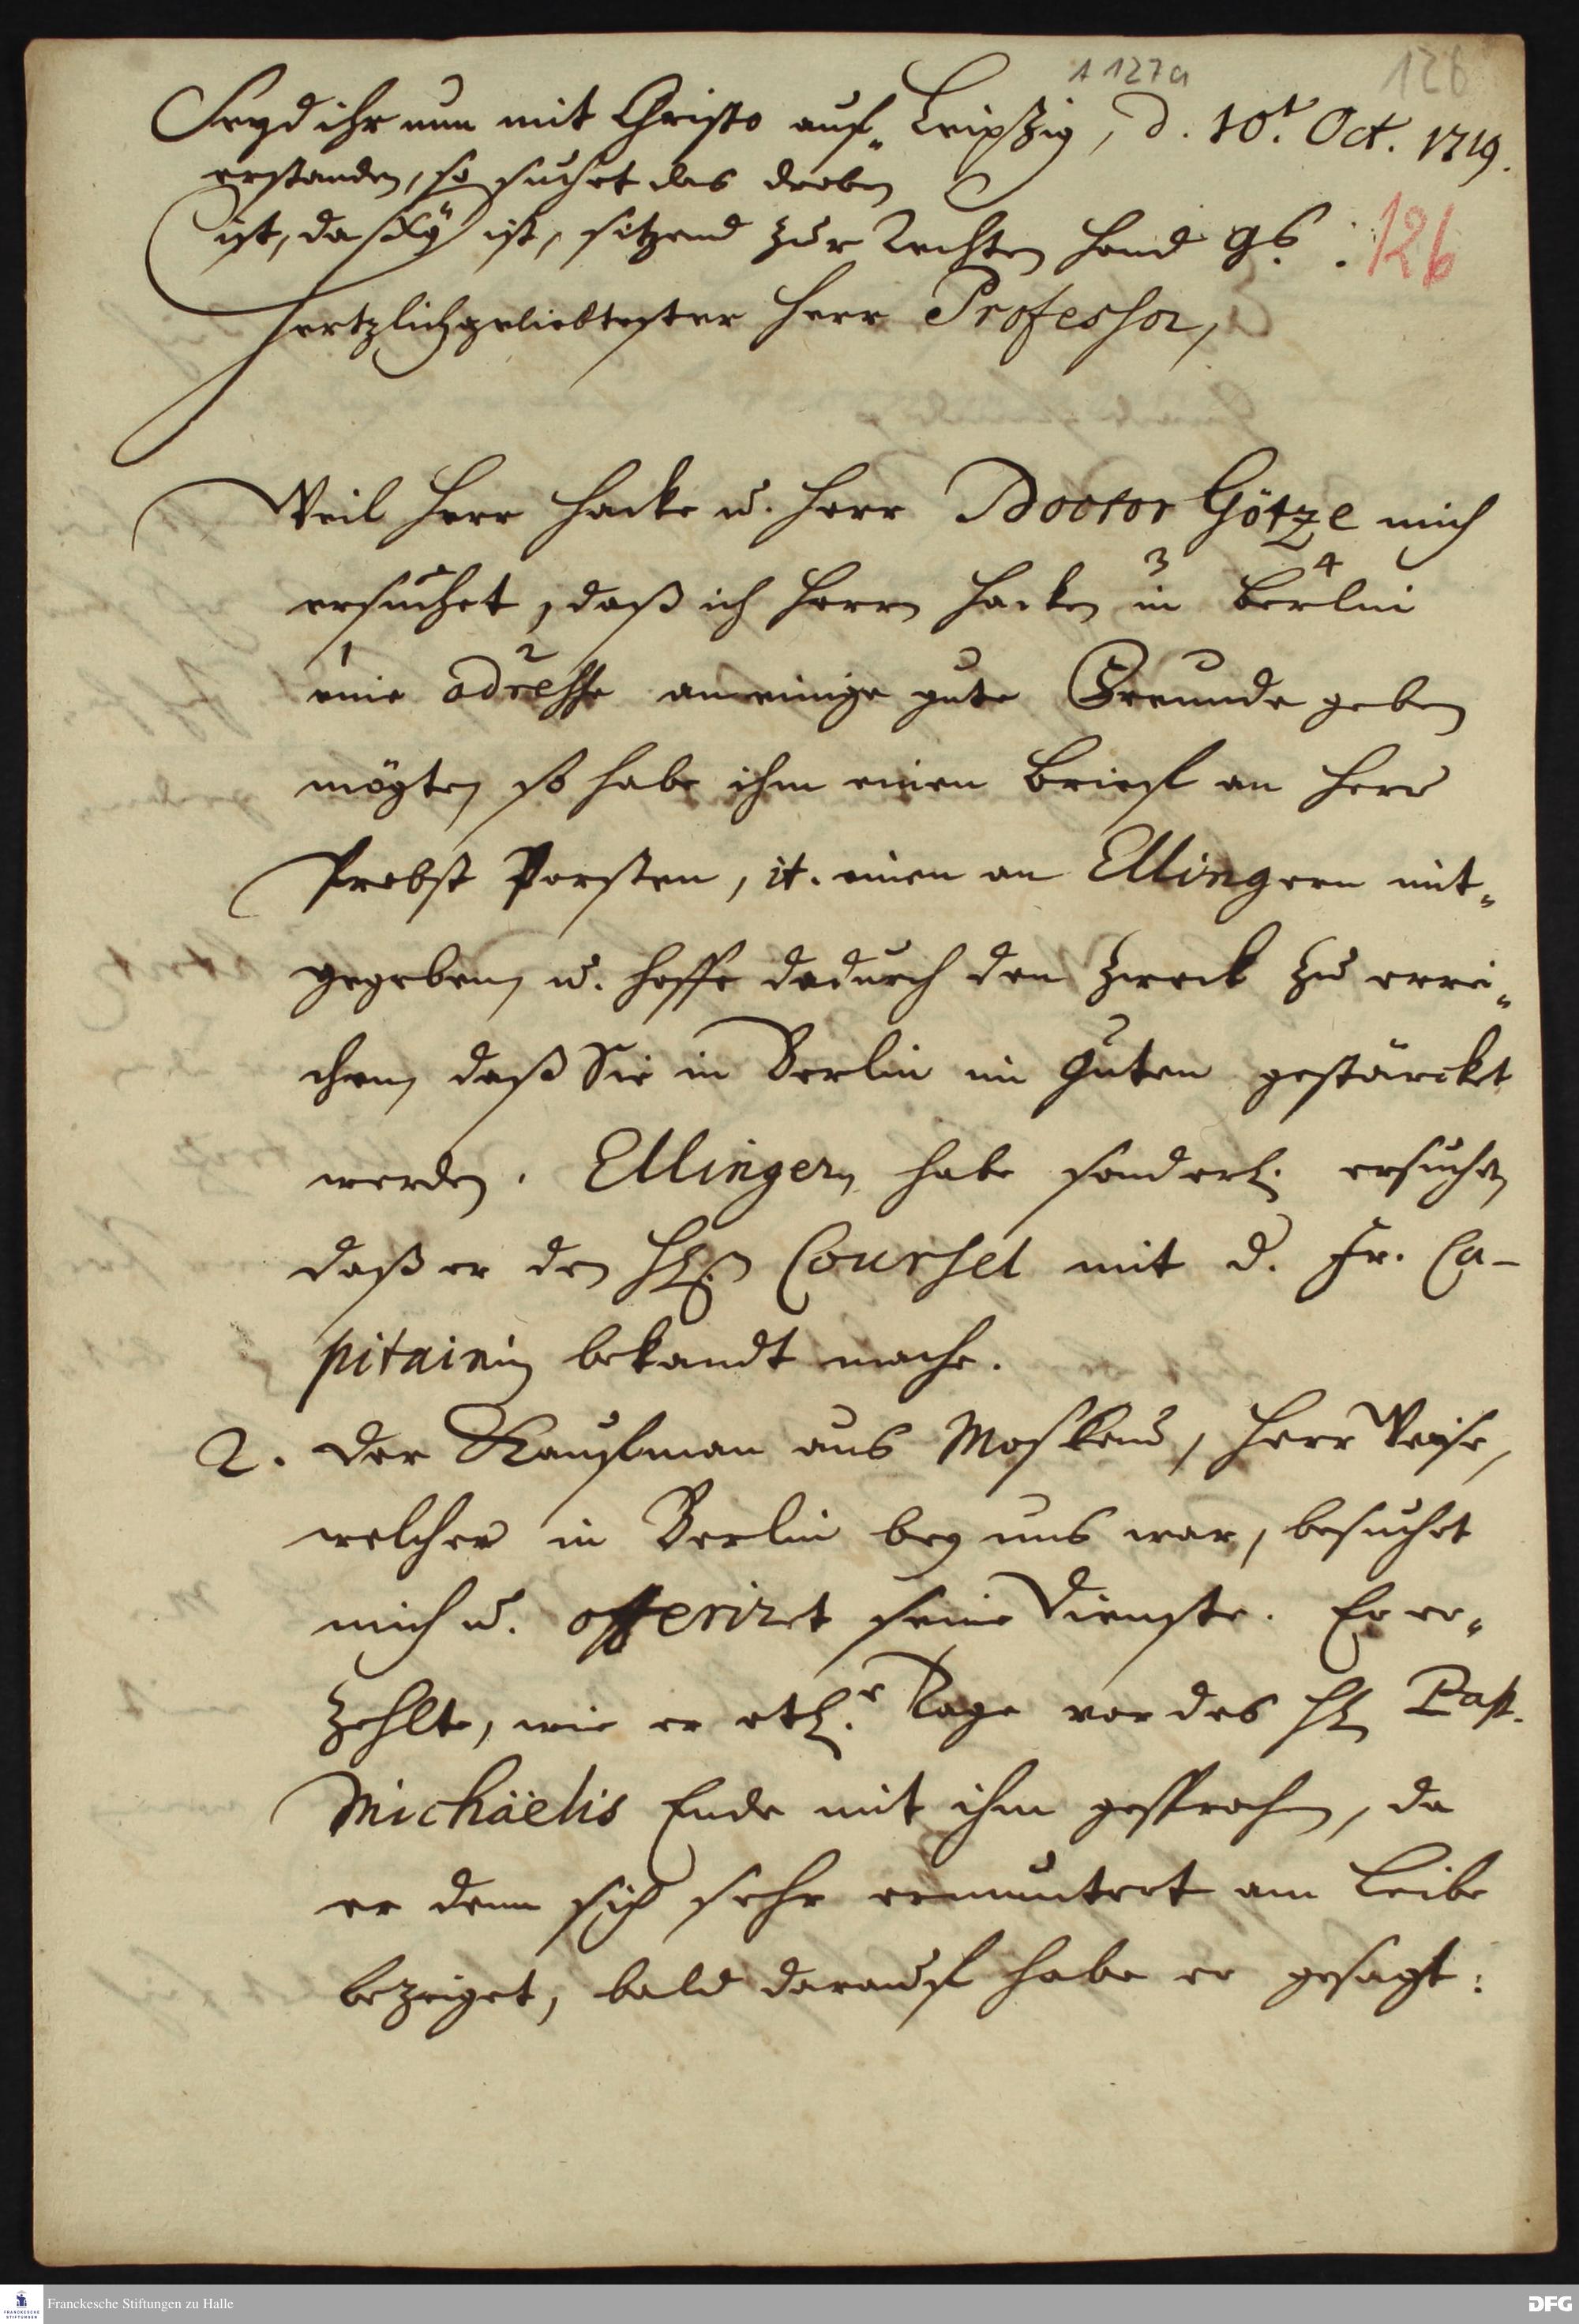 1 127a
126
Seyd ihr nun mit Christo auf„ Leipzig, d. 10t. Oct. 1719.
erstanden, so suchet das droben
ist, da Xg ist, sitzend zur Rechten Hand gs. :
126
Hertzlichgeliebtester Herr Professor,
Weil Herr Hacke u. Herr Doctor Götze mich
ersuchet, daß ich Herrn Hacken in Berlin
3 4
eine adresse an einige gute Freunde geben
1 2
mögte, so habe ihm einen Brieff an Herr
Probst Porsten, it. einen an Ellingern mit„
gegeben, u. hoffe dadurch den Zweck zu errei„
chen, daß Sie in Berlin im Guten gestärcket
werden. Ellingern habe sonderl. ersuchet,
daß er den Hln Courset mit d. Fr. Ca-
pitainin bekandt mache.
2. Der Kauffman aus Moskau, Herr Weise,
welcher in Berlin bey uns war, besuchet
mich u. offeriret seine Dienste. Er er„
zehlte, wie er etl.e Tage vor des Hl Past.
Michäelis Ende mit ihm gesprochen, da
er denn sich sehr ermuntert am Leibe
bezeiget, bald darauff habe er gesagt:
Franckesche Stiftungen zu Halle
DFG